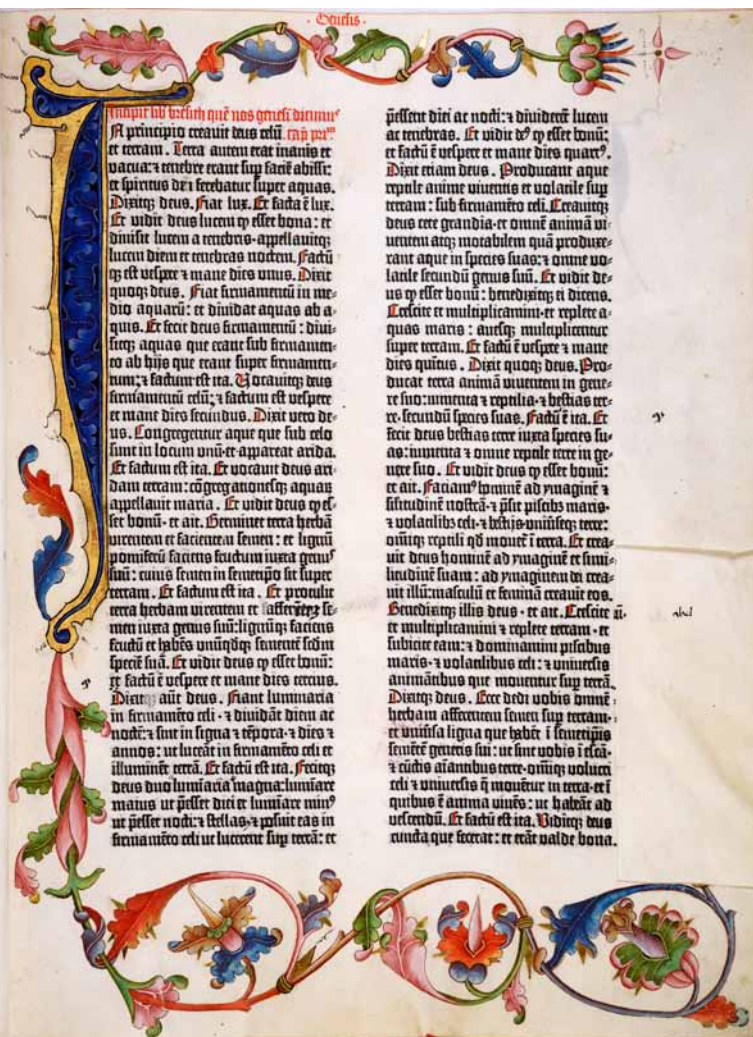 Genesis
Incipit lib̄ bresith quē nos genesi dicimus
In principio creauit deus celū cap̄ prim̄
et terram. Terra autem erat inanis et
vacua: ⁊ tenebre erant sup̄ faciē abissi:
et spiritus dei ferebatur super aquas.
Dixitqꝫ deus. Fiat lux. Et facta ē lux.
Et vidit deus lucem ꝙ esset bona: et
diuisit lucem a tenebris · appellauitqꝫ
lucem diem et tenebras noctem. Factū
qꝫ est vespere ⁊ mane dies unus. Dixit
quoqꝫ deus. Fiat firmamentū in me⸗
dio aquarū: et diuidat aquas ab a⸗
quis. Et fecit deus firmamentū: diui⸗
sitqꝫ aquas que erant sub firmamen⸗
to ab hijs que erant super firmamen⸗
tum: ⁊ factum est ita. Vocauitqꝫ deus
firmamentū celū: ⁊ factum est vespere
et mane dies secundus. Dixit vero de⸗
us. Congregentur aque que sub celo
sunt in locum unū · et appareat arida.
Et factum est ita. Et vocauit deus ari⸗
dam terram: cōgregationesqꝫ aquaꝝ
appellauit maria. Et vidit deus ꝙ es⸗
set bonū · et ait. Germinet terra herbā
virentem et facientem semen: et lignū
pomiferū faciens fructum iuxta genus
suū: cuius semen in semetipso sit super
terram. Et factum est ita. Et protulit
terra herbam virentem et faciētē se⸗
men iuxta genus suū: lignūqꝫ faciens
fructū et habēs unūqdqꝫ sementē scdm
speciē suā. Et vidit deus ꝙ esset bonū:
et factū ē vespere et mane dies tercius.
Dixit aūt deus. Fiant luminaria
in firmamēto celi · ⁊ diuidāt diem ac
noctē: ⁊ sint in signa ⁊ tēpora · ⁊ dies ⁊
annos: ut luceāt in firmamēto celi et
illuminēt terrā. Et factū est ita. Fecitqꝫ
deus duo luminaria magna: luminare
maius ut p̄esset diei et luminare min⁹
ut p̄esset nocti: ⁊ stellas · ⁊ posuit eas in
firmamēto celi ut lucerent sup̄ terrā: et
p̄essent diei ac nocti: ⁊ diuiderēt lucem
ac tenebras. Et vidit de⁹ ꝙ esset bonū:
et factū ē vespere et mane dies quart⁹.
Dixit etiam deus. Producant aque
reptile anime viuentis et volatile sup̄
terram: sub firmamēto celi. Creauitqꝫ
deus cete grandia · et omnē animā vi⸗
uentem atqꝫ motabilem quā produxe⸗
rant aque in species suas: ⁊ omne vo⸗
latile secundū genus suū. Et vidit de⸗
us ꝙ esset bonū: benedixitqꝫ ei dicens.
Crescite et multiplicamini · et replete a⸗
quas maris: auesqꝫ multiplicentur
super terram. Et factū ē vespere ⁊ mane
dies quītus. Dixit quoqꝫ deus. Pro⸗
ducat terra animā viuentem in gene⸗
re suo: iumenta ⁊ reptilia · ⁊ bestias ter⸗
re · secundū species suas. Factū ē ita. Et
fecit deus bestias terre iuxta species su⸗
as: iumenta ⁊ omne reptile terre in ge⸗
nere suo. Et vidit deus ꝙ esset bonū:
et ait. Faciam⁹ hominē ad ymaginē ⁊
similitudinē nostrā · ⁊ p̄sit piscibꝫ maris ·
⁊ volatilibꝫ celi · ⁊ bestijs uniūseqꝫ terre:
omniqꝫ reptili qd mouet̄ ī terra. Et crea⸗
uit deus hominē ad ymaginē et simi⸗
litudinē suam: ad ymaginem dei crea⸗
uit illū: masculū et feminā creauit eos.
Benedixitqꝫ illis deus · et ait. Crescite
et multiplicamini ⁊ replete terram · et
subicite eam: ⁊ dominamini piscibus
maris · ⁊ volatilibus celi: ⁊ uniuersis
animātibus que mouentur sup̄ terrā.
Dixitqꝫ deus. Ecce dedi vobis omnē
herbam afferentem semen sup̄ terram ·
et uniūsa ligna que habēt ī semetipīs
semētē generis sui: ut sint vobis ī escā ·
⁊ cūctis aīantibus terre · omniqꝫ volucri
celi ⁊ uniuersis q̄ mouētur in terra · et ī
quibus ē anima viuēs: ut habeāt ad
vescendū. Et factū est ita. Viditqꝫ deus
cuncta que fecerat: et erāt valde bona.